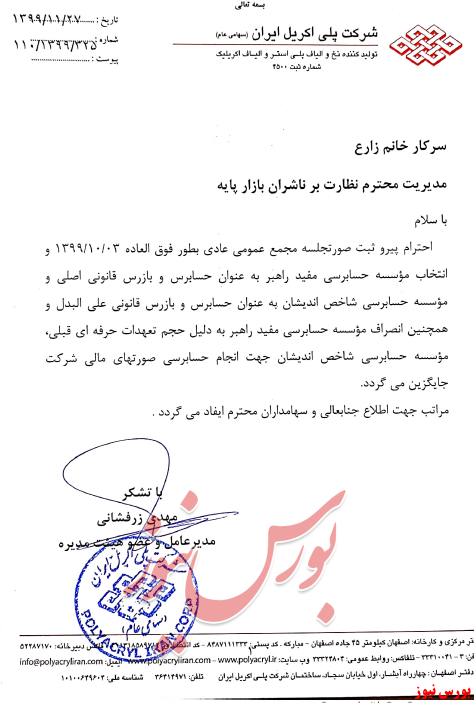 بسمه تعالی
شرکت پلی اکریل ایران (سهامی عام)
تولید کننده نخ و الیاف پلی استر و الیاف اکریلیک
شماره ثبت ۴۵۰۰
تاریخ : ۱۳۹۹/۱۱/۲۷
شماره: ۱۱۰/۱۳۹۹/۳۲۵
پیوست :
سرکار خانم زارع
مدیریت محترم نظارت بر ناشران بازار پایه
با سلام
احترام پیرو ثبت صورتجلسه مجمع عمومی عادی بطور فوق العاده ۱۳۹۹/۱۰/۰۳ و
انتخاب مؤسسه حسابرسی مفید راهبر به عنوان حسابرس و بازرس قانونی اصلی و
مؤسسه حسابرسی شاخص اندیشان به عنوان حسابرس و بازرس قانونی علی البدل و
همچنین انصراف مؤسسه حسابرسی مفید راهبر به دلیل حجم تعهدات حرفه ای قبلی،
مؤسسه حسابرسی شاخص اندیشان جهت انجام حسابرسی صورتهای مالی شرکت
جایگزین می گردد.
مراتب جهت اطلاع جنابعالی و سهامداران محترم ایفاد می گردد .
با تشکر
مهدی زرفشانی
مدیرعامل و عضو هیئت مدیره
شرکت پلی اکریل ایران
(سهامی عام)
POLYACRYL IRAN CORP
بورس نیوز
تر مرکزی و کارخانه: اصفهان کیلومتر ۴۵ جاده اصفهان - مبارکه . کد پستی: ۸۴۸۷۱۱۱۳۳۳ - کد اقتصادی: دبیرخانه: ۵۲۲۸۷۱۷۰
روابط عمومی: ۳۳۳۲۲۸۰۴ وب سایت: www.polyacryl.ir - www.polyacryliran.com ایمیل: info@polyacryliran.com
دفتر اصفهان: چهارراه آبشار، اول خیابان سجاد، ساختمان شرکت پلی اکریل ایران تلفن: ۳۶۴۱۴۹۷۱ شناسه ملی: ۱۰۱۰۰۶۴۹۶۰۲
بورس نیوز